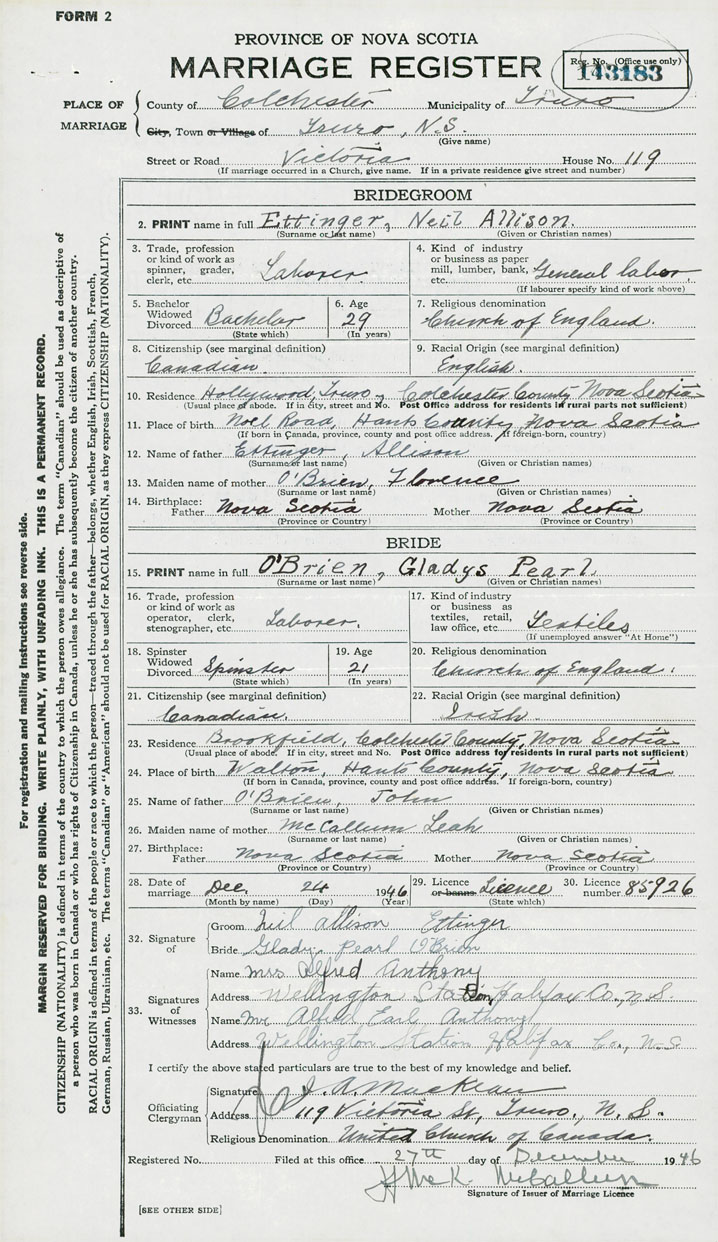 FORM 2
PROVINCE OF NOVA SCOTIA
MARRIAGE REGISTER
Reg. No. (Office use only)
143183
PLACE OF MARRIAGE
County of Colchester Municipality of Truro
City, Town or Village of Truro, N.S.
(Give name)
Street or Road Victoria House No. 119
(If marriage occurred in a Church, give name. If in a private residence give street and number)
BRIDEGROOM
2. PRINT name in full Ettinger, Neil Allison.
(Surname or last name) (Given or Christian names)
3. Trade, profession or kind of work as spinner, grader, clerk, etc. Laborer.
4. Kind of industry or business as paper mill, lumber, bank, etc. General labor
(If labourer specify kind of work above)
5. Bachelor Widowed Divorced Bachelor
(State which)
6. Age 29
(In years)
7. Religious denomination
Church of England.
8. Citizenship (see marginal definition)
Canadian.
9. Racial Origin (see marginal definition)
English.
10. Residence Hollywood, Truro, Colchester County Nova Scotia
(Usual place of abode. If in city, street and No. Post Office address for residents in rural parts not sufficient)
11. Place of birth Noel Road, Hants County, Nova Scotia
(If born in Canada, province, county and post office address. If foreign-born, country)
12. Name of father Ettinger, Allison
(Surname or last name) (Given or Christian names)
13. Maiden name of mother O'Brien, Florence
(Surname or last name) (Given or Christian names)
14. Birthplace: Father Nova Scotia Mother Nova Scotia
(Province or Country) (Province or Country)
BRIDE
15. PRINT name in full O'Brien, Gladys Pearl.
(Surname or last name) (Given or Christian names)
16. Trade, profession or kind of work as operator, clerk, stenographer, etc. Laborer.
17. Kind of industry or business as textiles, retail, law office, etc. Textiles
(If unemployed answer "At Home")
18. Spinster Widowed Divorced Spinster
(State which)
19. Age 21
(In years)
20. Religious denomination
Church of England.
21. Citizenship (see marginal definition)
Canadian.
22. Racial Origin (see marginal definition)
Irish.
23. Residence Brookfield, Colchester County, Nova Scotia
(Usual place of abode. If in city, street and No. Post Office address for residents in rural parts not sufficient)
24. Place of birth Walton, Hants County, Nova Scotia
(If born in Canada, province, county and post office address. If foreign-born, country)
25. Name of father O'Brien, John
(Surname or last name) (Given or Christian names)
26. Maiden name of mother McCallum Leah
(Surname or last name) (Given or Christian names)
27. Birthplace: Father Nova Scotia Mother Nova Scotia
(Province or Country) (Province or Country)
28. Date of marriage Dec. 24 1946
(Month by name) (Day) (Year)
29. Licence or banns Licence
(State which)
30. Licence number 85926
32. Signature of
Groom Neil Allison Ettinger
Bride Gladys Pearl O'Brien
33. Signatures of Witnesses
Name Mrs Alfred Anthony
Address Wellington Station, Halifax Co., N.S.
Name Mr Alfred Earl Anthony
Address Wellington Station Halifax Co., N.S
I certify the above stated particulars are true to the best of my knowledge and belief.
Officiating Clergyman
Signature J. A. MacKean
Address 119 Victoria St, Truro, N.S.
Religious Denomination United Church of Canada.
Registered No. Filed at this office 27th day of December 1946
McCallum
Signature of Issuer of Marriage Licence
[SEE OTHER SIDE]
For registration and mailing instructions see reverse side.
MARGIN RESERVED FOR BINDING. WRITE PLAINLY, WITH UNFADING INK. THIS IS A PERMANENT RECORD.
CITIZENSHIP (NATIONALITY) is defined in terms of the country to which the person owes allegiance. The term "Canadian" should be used as descriptive of
a person who was born in Canada or who has rights of Citizenship in Canada, unless he or she has subsequently become the citizen of another country.
RACIAL ORIGIN is defined in terms of the people or race to which the person—traced through the father—belongs, whether English, Irish, Scottish, French,
German, Russian, Ukrainian, etc. The terms "Canadian" or "American" should not be used for RACIAL ORIGIN, as they express CITIZENSHIP (NATIONALITY).